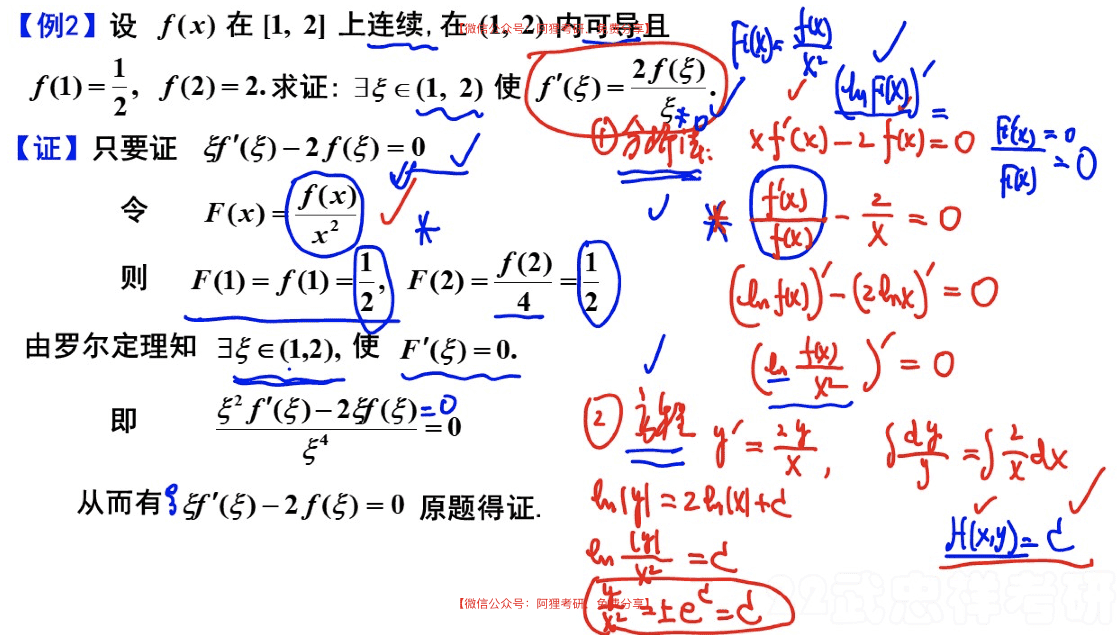 【例2】设 f(x) 在 [1, 2] 上连续, 在 (1, 2) 内可导且
【微信公众号: 阿狸考研, 免费分享】
f(1) = 1/2, f(2) = 2. 求证: ∃ξ∈(1, 2) 使 f′(ξ) = 2f(ξ)/ξ.
【证】只要证 ξf′(ξ) − 2f(ξ) = 0
令 F(x) = f(x)/x²
则 F(1) = f(1) = 1/2, F(2) = f(2)/4 = 1/2
由罗尔定理知 ∃ξ∈(1,2), 使 F′(ξ) = 0.
即 (ξ²f′(ξ) − 2ξf(ξ))/ξ⁴ = 0
=0
从而有 ξf′(ξ) − 2f(ξ) = 0 原题得证.
F(x) = f(x)/x²
(ln F(x))′ =
F′(x)/F(x) = 0
=0
① 分析法:
xf′(x) − 2f(x) = 0
f′(x)/f(x) − 2/x = 0
(ln f(x))′ − (2lnx)′ = 0
(ln f(x)/x²)′ = 0
② 方程 y′ = 2y/x, ∫dy/y = ∫2/x dx
ln|y| = 2ln|x| + C
ln |y|/x² = C
y/x² = ±e^C = C
H(x,y) = C
【微信公众号: 阿狸考研, 免费分享】
22武忠祥考研